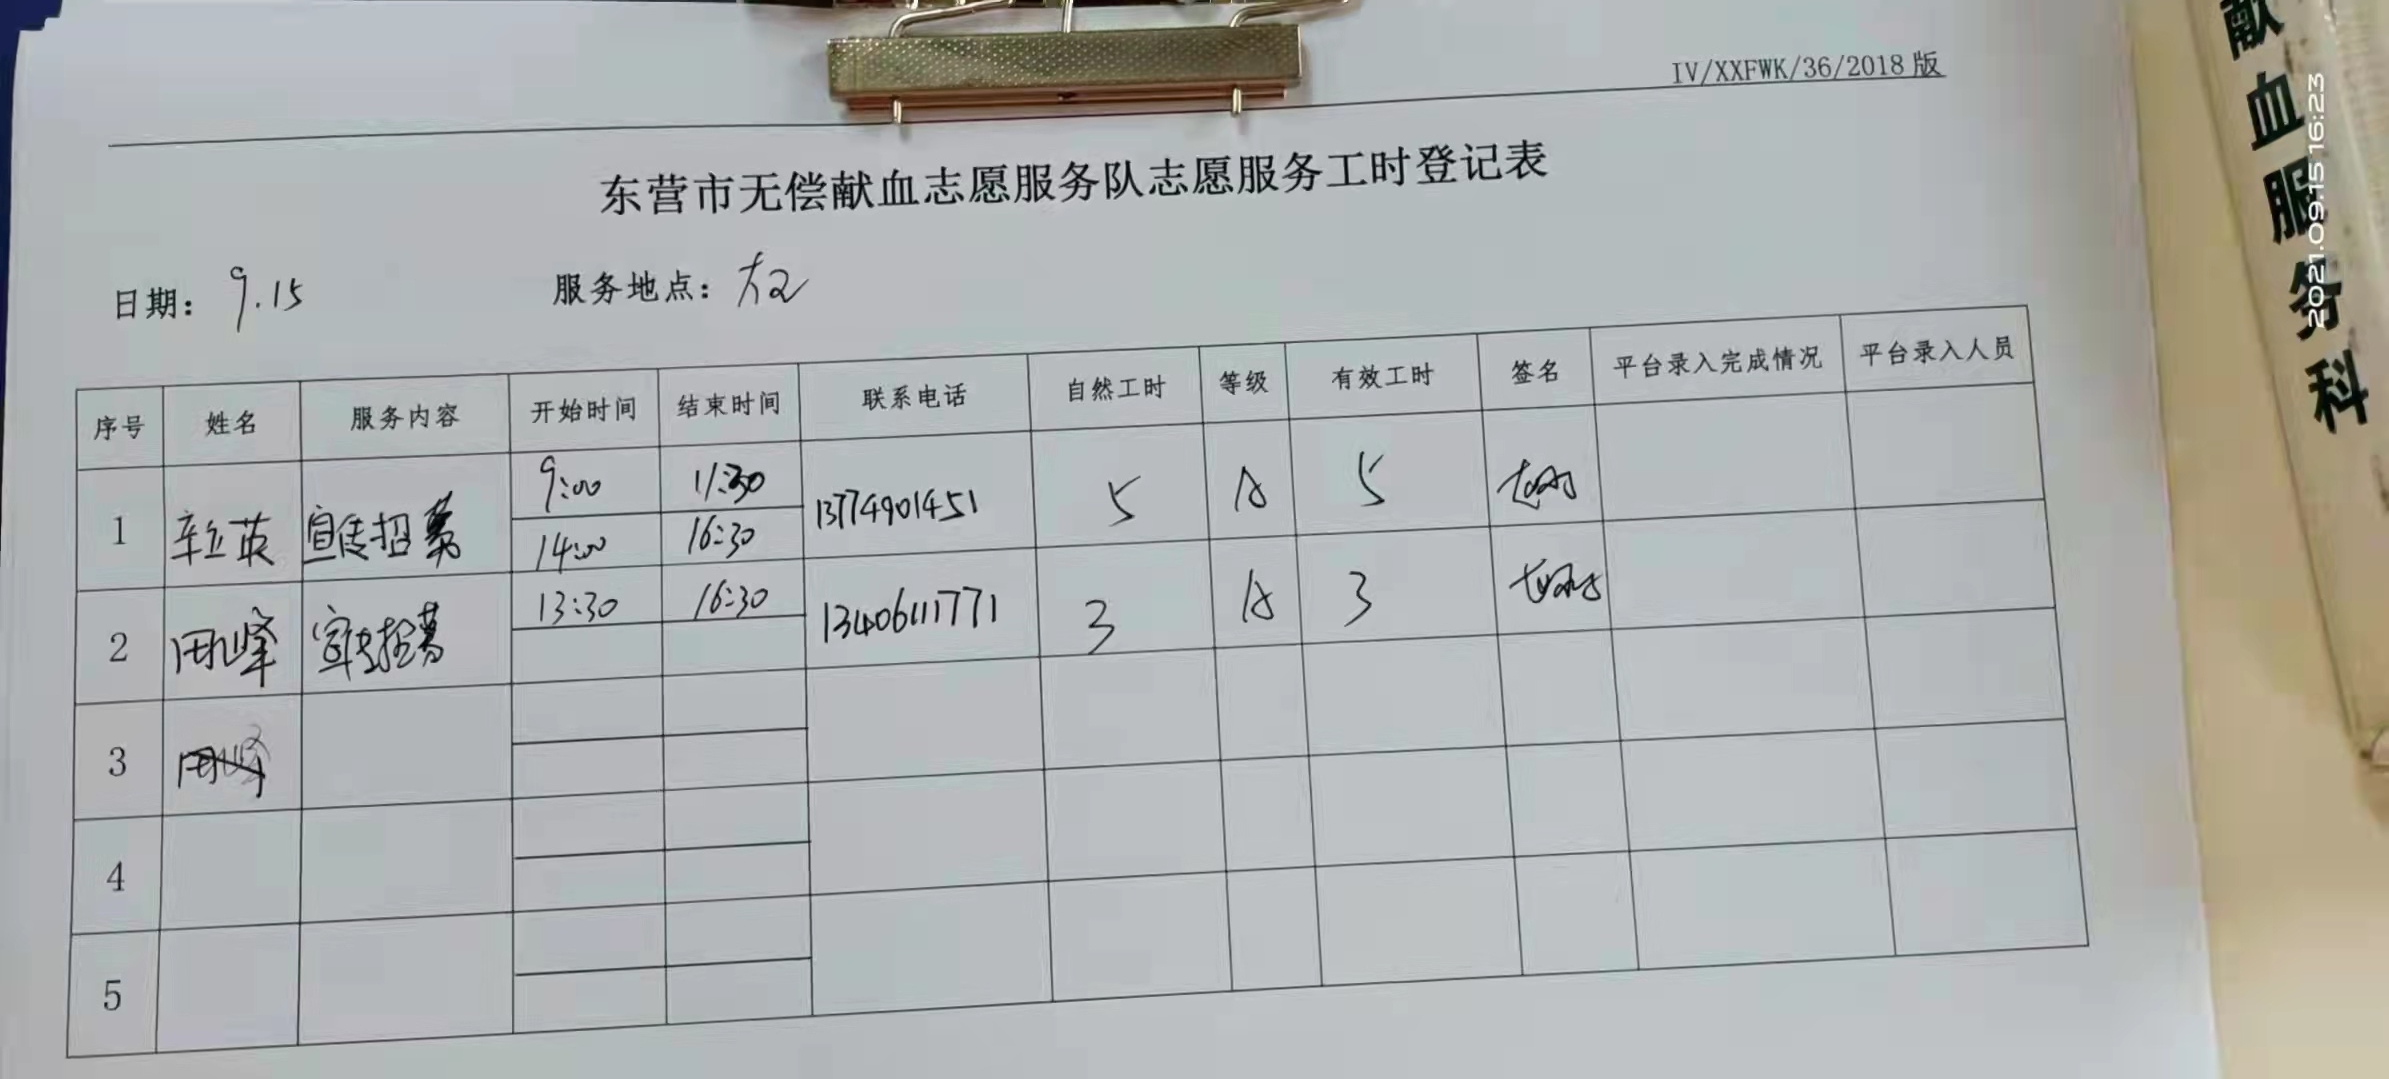 IV/XXFWK/36/2018版
东营市无偿献血志愿服务队志愿服务工时登记表
日期: 9.15 服务地点:
序号 姓名 服务内容 开始时间 结束时间 联系电话 自然工时 等级 有效工时 签名 平台录入完成情况 平台录入人员
1 辛立英 宣传招募 9:00 11:30 13774901451 5 A 5
14:00 16:30
2 宣传招募 13:30 16:30 13406111771 3 A 3
3
4
5
献血服务科
2021.09.15 16:23